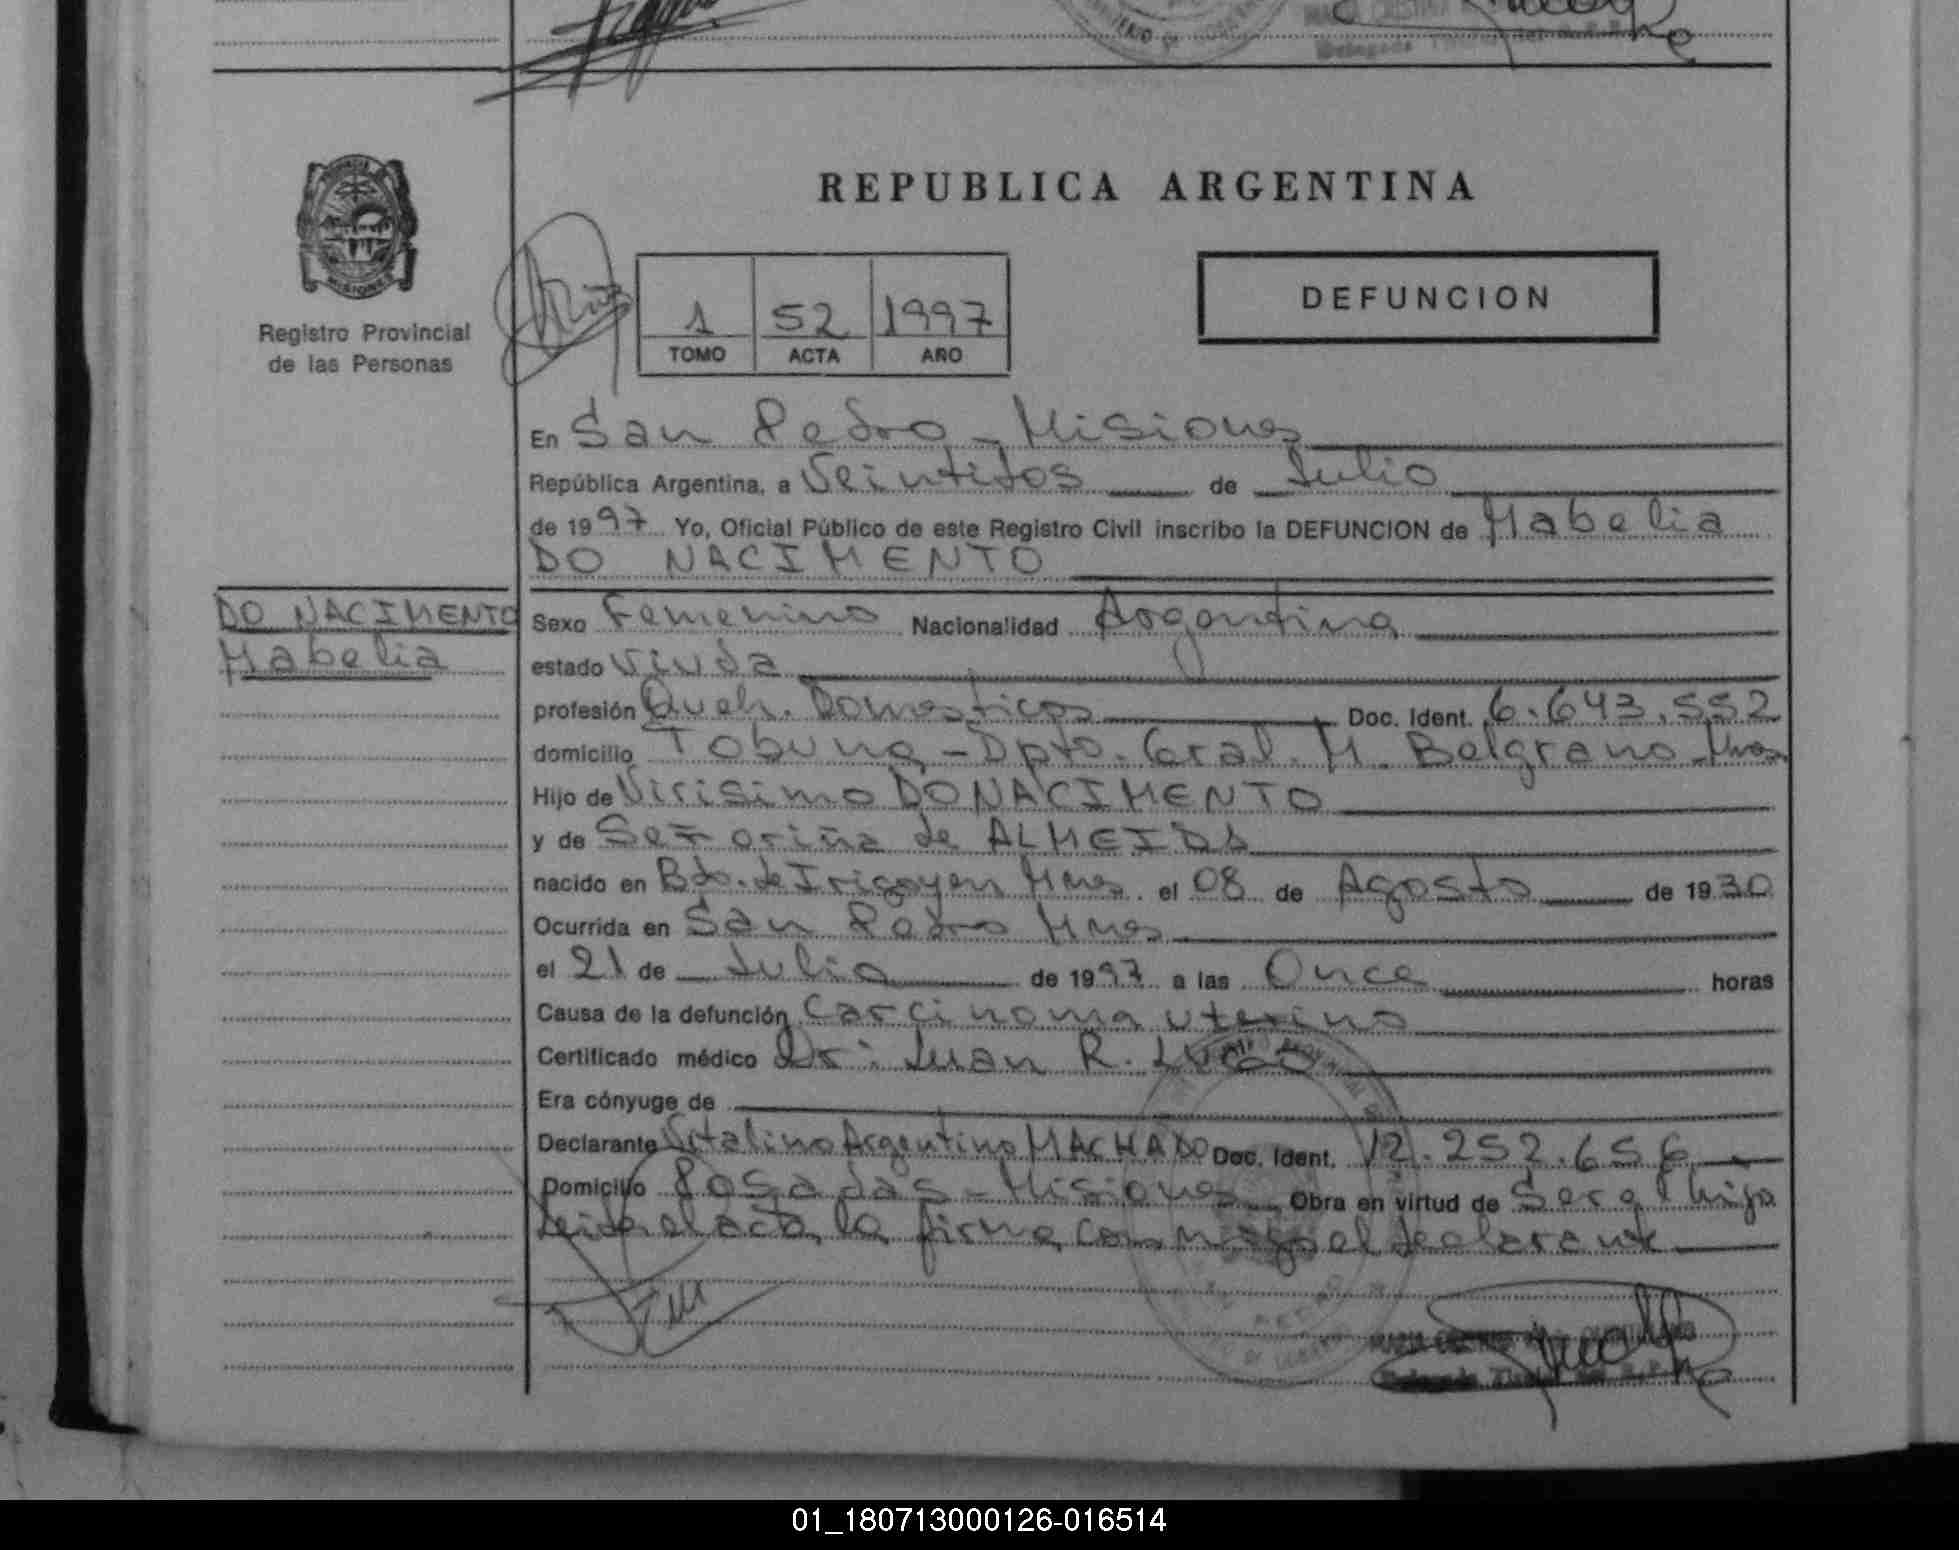 REPUBLICA ARGENTINA
Registro Provincial
de las Personas
1 52 1997
TOMO ACTA AÑO
DEFUNCION
En San Pedro - Misiones
República Argentina, a Veintidos de Julio
de 1997 Yo, Oficial Público de este Registro Civil inscribo la DEFUNCION de Mabelia
DO NACIMENTO
DO NACIMENTO
Mabelia
Sexo Femenino Nacionalidad Argentina
estado Viuda
profesión Queh. Domesticos Doc. Ident. 6.643.552
domicilio Tobuna - Dpto. Gral. M. Belgrano - Mnes
Hijo de Virisimo DO NACIMENTO
y de Señoriña de ALMEIDA
nacido en Bdo. de Irigoyen Mnes el 08 de Agosto de 1930
Ocurrida en San Pedro Mnes
el 21 de Julio de 1997 a las Once horas
Causa de la defunción Carcinoma uterino
Certificado médico Dr: Juan R. Lugo
Era cónyuge de
Declarante Vitalino Argentino MACHADO Doc. Ident. 12.252.656
Domicilio Posadas - Misiones Obra en virtud de Ser el hijo
Leida el acta, la firma conmigo el declarante
01_180713000126-016514